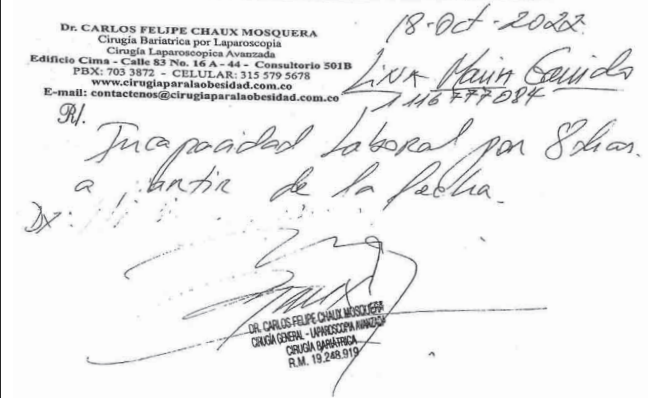 Dr. CARLOS FELIPE CHAUX MOSQUERA
Cirugía Bariatrica por Laparoscopia
Cirugía Laparoscopica Avanzada
Edificio Cima - Calle 83 No. 16 A - 44 - Consultorio 501B
PBX: 703 3872 - CELULAR: 315 579 5678
www.cirugiaparalaobesidad.com.co
E-mail: contactenos@cirugiaparalaobesidad.com.co
18-Oct-2022
Lina Maria Garrido
1116777084
R/.
Incapacidad Laboral por 8 dias.
a partir de la fecha.
DX:
Chaux
DR. CARLOS FELIPE CHAUX MOSQUERA
CIRUGÍA GENERAL - LAPAROSCOPIA AVANZADA
CIRUGÍA BARIÁTRICA
R.M. 19.248.919